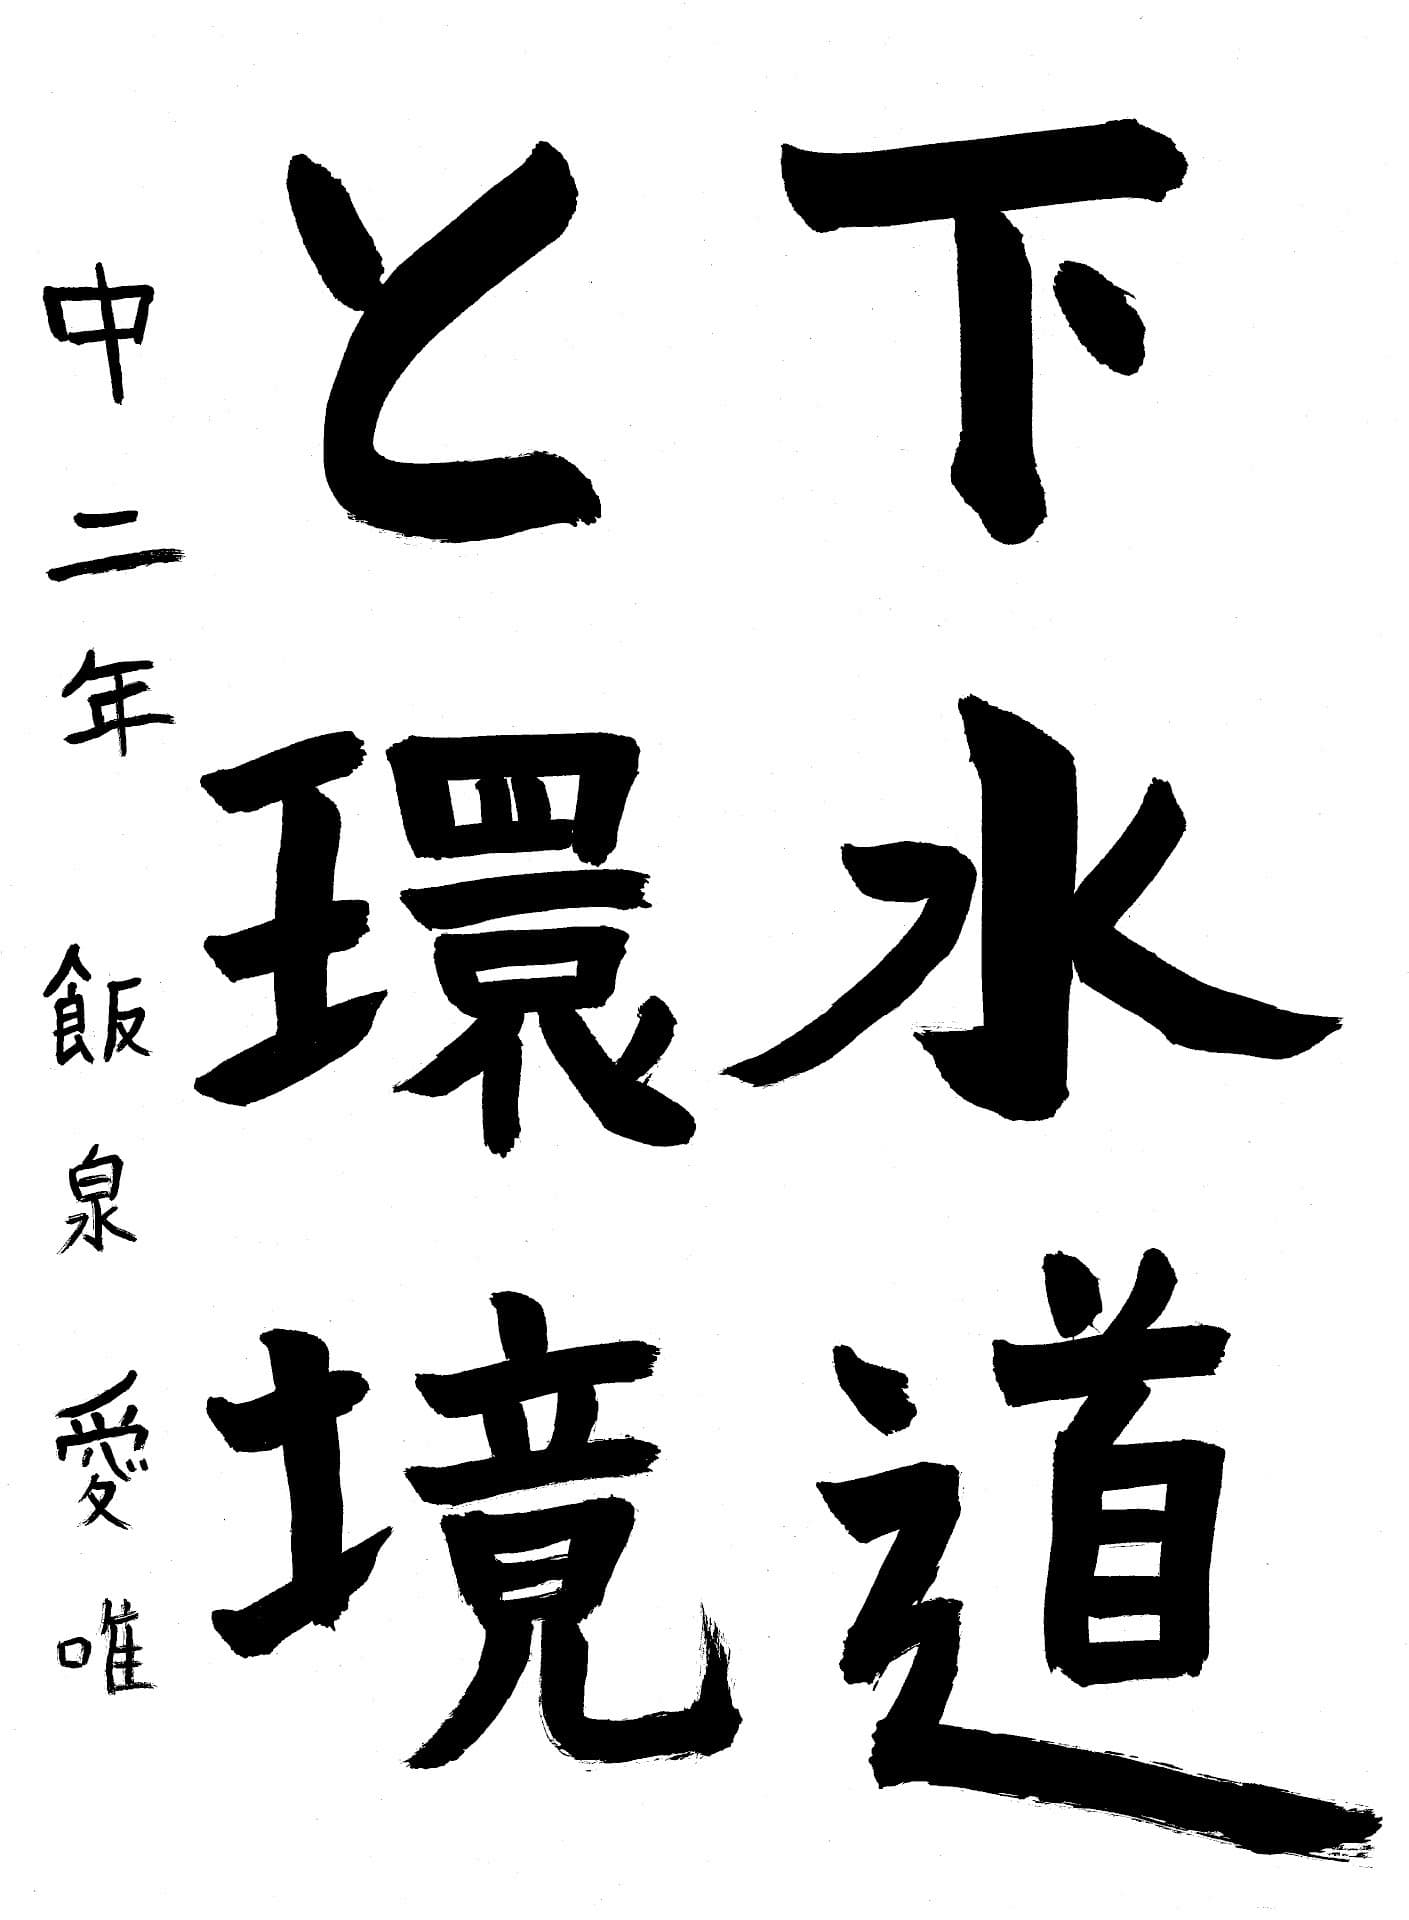 下水道
と環境
中二年 飯泉愛唯